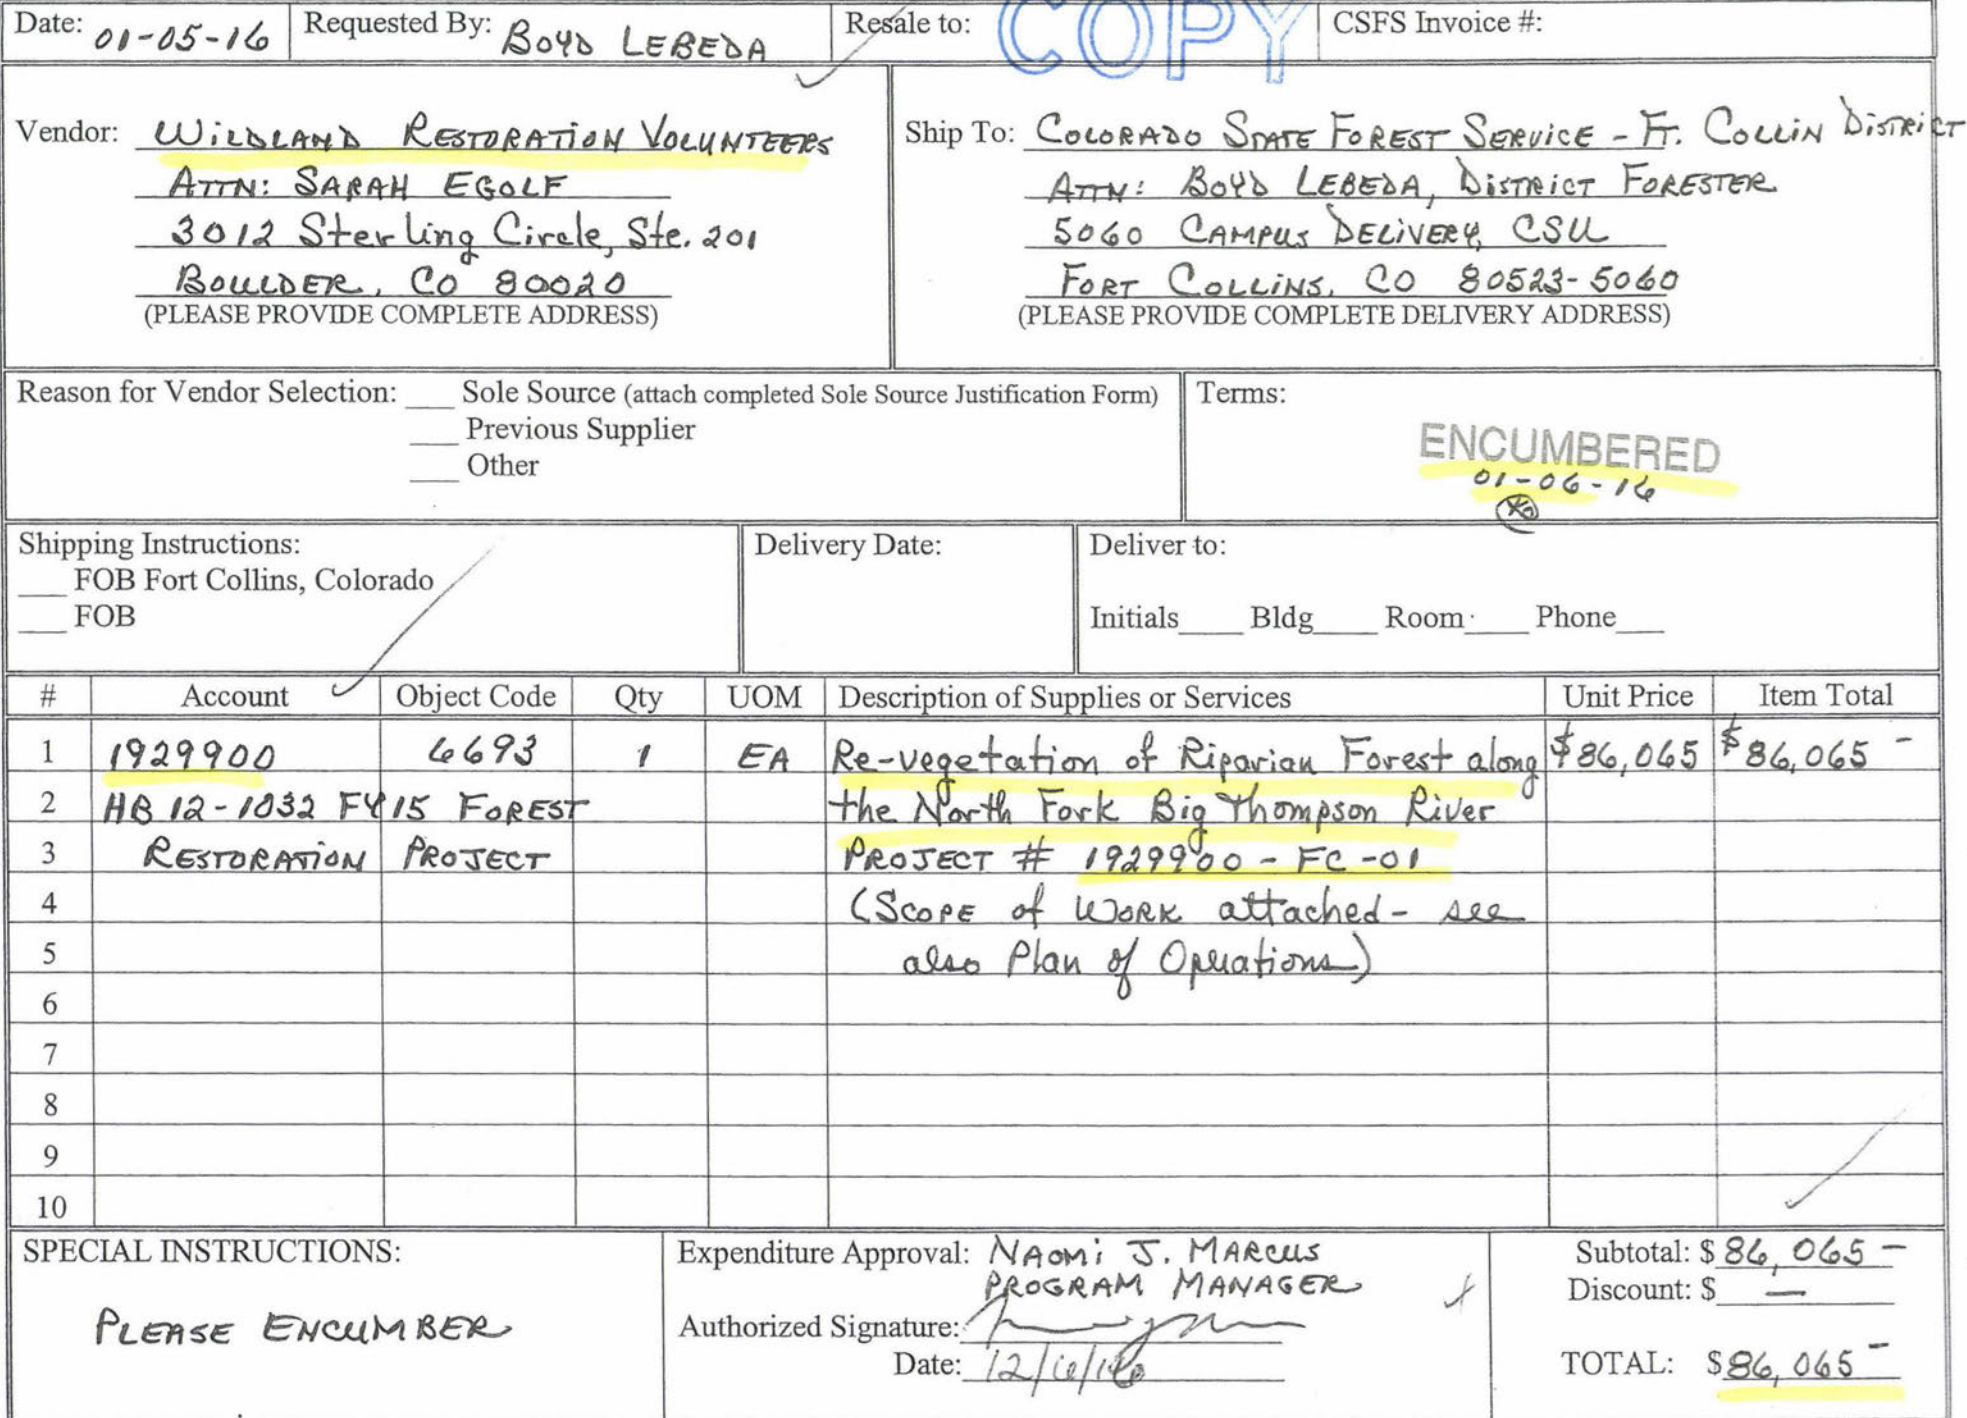 Date: 01-05-16 Requested By: BOYD LEBEDA Resale to: COPY CSFS Invoice #:
Vendor: WILDLAND RESTORATION VOLUNTEERS
ATTN: SARAH EGOLF
3012 Sterling Circle, Ste. 201
BOULDER, CO 80020
(PLEASE PROVIDE COMPLETE ADDRESS)
Ship To: COLORADO STATE FOREST SERVICE - FT. COLLIN DISTRICT
ATTN: BOYD LEBEDA, DISTRICT FORESTER
5060 CAMPUS DELIVERY, CSU
FORT COLLINS, CO 80523-5060
(PLEASE PROVIDE COMPLETE DELIVERY ADDRESS)
Reason for Vendor Selection: ___ Sole Source (attach completed Sole Source Justification Form)
___ Previous Supplier
___ Other
Terms:
ENCUMBERED
01-06-16
Shipping Instructions:
___ FOB Fort Collins, Colorado
___ FOB
Delivery Date:
Deliver to:
Initials____ Bldg____ Room ____ Phone___
# Account Object Code Qty UOM Description of Supplies or Services Unit Price Item Total
1 1929900 6693 1 EA Re-vegetation of Riparian Forest along $86,065 $86,065 -
2 HB 12-1032 FY15 FOREST the North Fork Big Thompson River
3 RESTORATION PROJECT PROJECT # 1929900 - FC -01
4 (SCOPE of WORK attached - see
5 also Plan of Operations)
6
7
8
9
10
SPECIAL INSTRUCTIONS:
PLEASE ENCUMBER
Expenditure Approval: NAOMI J. MARCUS
PROGRAM MANAGER
Authorized Signature:
Date:
Subtotal: $ 86,065 -
Discount: $ —
TOTAL: $ 86,065 -